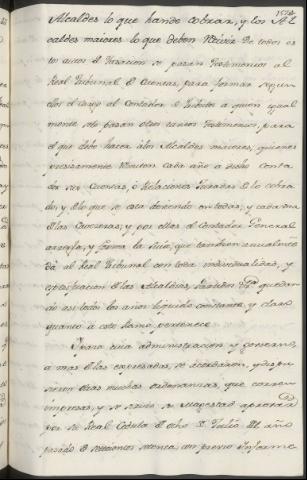 Alcaldes lo que han de cobrar, y los Al
caldes maiores lo que deben Recivir De todos es
tos autos de Tasacion se pasan Testimonios al
Real Tribunal de Cuentas, para formar segun
dos el cargo al Contador de Tributos a quien igual
mente se le pasan otros tantos Testimonios, para
el que debe hacer a los Alcaldes maiores, quienes
precisamente Remiten cada año a dicho Conta
dor sus Cuentas, ò Relaciones Juradas de lo cobra
do, y de lo que se esta debiendo en todas, y cada una
de las Caveceras; y por ellas el Contador General
arregla, y forma la suia, que tambien anualmente
dà al Real Tribunal con toda individualidad, y
especificacion de las Alcaldias, Partidos quedan
do asi todos los años liquido constante, y claro
quanto à este Ramo pertenece
Y para cuia administracion, y govierno,
à mas de las expresadas, se acordaron, y dispu
sieron otras muchas ordenanzas, que corren
impresas, y se sirvio su Magestad aprovar
por su Real Cedula de ocho de Julio del año
pasado de setecientos setenta, con previo Informe